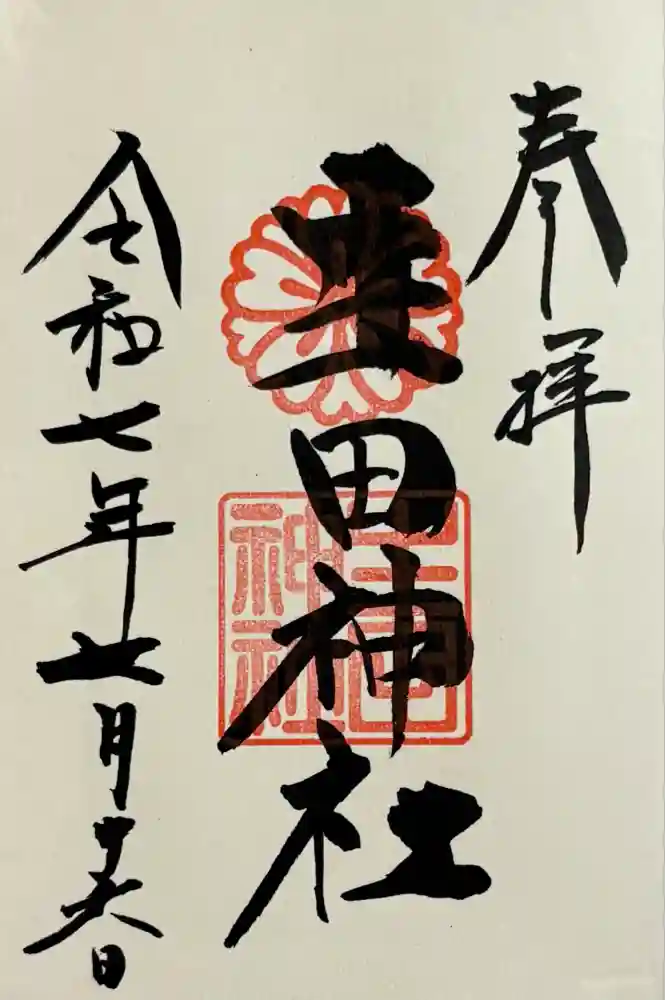 奉拝
田神社
令和七年七月廿六日
神社